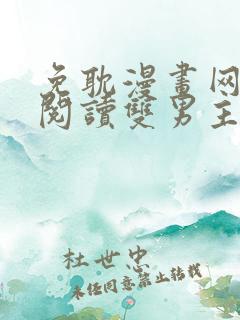 免耽漫畫网
閱讀雙男主
杜世忠
未经同意禁止转载